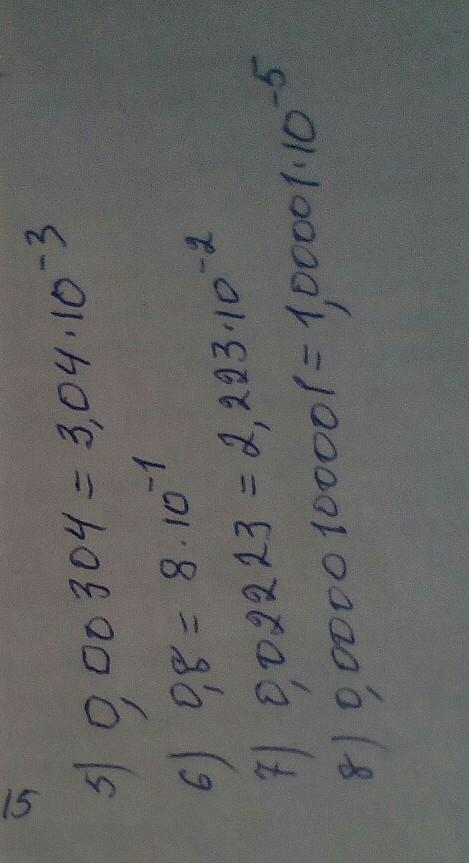 15
5) 0,00304 = 3,04·10⁻³
6) 0,8 = 8·10⁻¹
7) 0,02223 = 2,223·10⁻²
8) 0,0000100001 = 1,00001·10⁻⁵